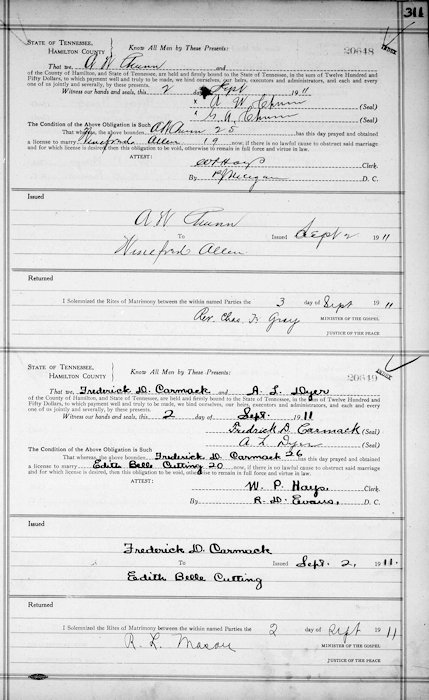 311
STATE OF TENNESSEE, Know All Men by These Presents: 20648
HAMILTON COUNTY
That we, A W Chunn and
of the County of Hamilton, and State of Tennessee, are held and firmly bound to the State of Tennessee, in the sum of Twelve Hundred and
Fifty Dollars, to which payment well and truly to be made, we bind ourselves, our heirs, executors and administrators, and each and every
one of us jointly and severally, by these presents.
Witness our hands and seals, this 2 day of Sept 1911
x A W Chunn (Seal)
x G. A. Chunn (Seal)
The Condition of the Above Obligation is Such
That whereas, the above bounden A W Chunn 25 has this day prayed and obtained
a license to marry Winefred Allen 19 now, if there is no lawful cause to obstruct said marriage
and for which license is desired, then this obligation to be void, otherwise to remain in full force and virtue in law.
ATTEST: W P Hays Clerk.
By D. C.
Issued
A W Chunn
To Issued Sept 2 1911
Wineford Allen
Returned
I Solemnized the Rites of Matrimony between the within named Parties the 3 day of Sept 1911
Rev. Chas. T. Gray MINISTER OF THE GOSPEL
JUSTICE OF THE PEACE
STATE OF TENNESSEE, Know All Men by These Presents: 20649
HAMILTON COUNTY
That we, Frederick D. Carmack and A. L. Dyer
of the County of Hamilton, and State of Tennessee, are held and firmly bound to the State of Tennessee, in the sum of Twelve Hundred and
Fifty Dollars, to which payment well and truly to be made, we bind ourselves, our heirs, executors and administrators, and each and every
one of us jointly and severally, by these presents.
Witness our hands and seals, this 2 day of Sept. 1911
Fredrick D. Carmack (Seal)
A. L. Dyer (Seal)
The Condition of the Above Obligation is Such
That whereas, the above bounden Frederick D. Carmack 26 has this day prayed and obtained
a license to marry Edith Belle Cutting 20 now, if there is no lawful cause to obstruct said marriage
and for which license is desired, then this obligation to be void, otherwise to remain in full force and virtue in law.
ATTEST: W. P. Hays, Clerk.
By R. D. Evans, D. C.
Issued
Frederick D. Carmack
To Issued Sept. 2, 1911.
Edith Belle Cutting
Returned
I Solemnized the Rites of Matrimony between the within named Parties the 2 day of Sept 1911
R. L. Mason MINISTER OF THE GOSPEL
JUSTICE OF THE PEACE